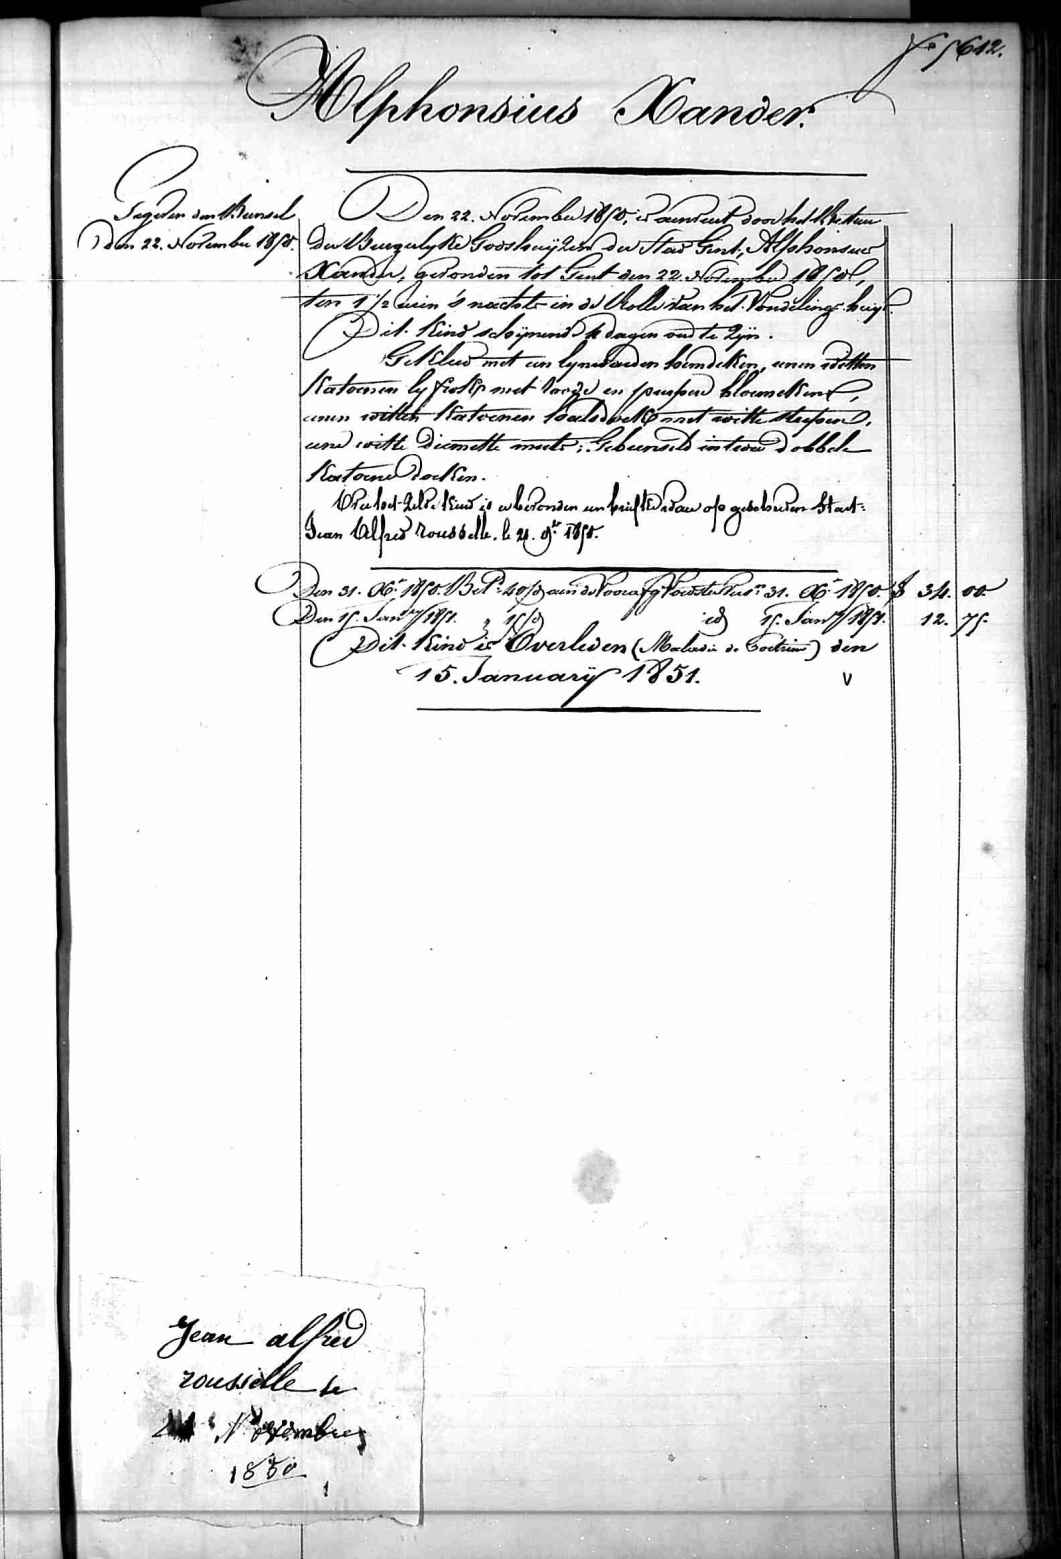 f° 5612.
Alphonsius Xander.
Gegeven den Bunsel
den 22. November 1850.
Den 22. November 1850, is aenveut door het Bestuer
der Burgerlyke Godshuyzen der Stad Gent, Alphonsius
Xander, gevonden tot Gent den 22. November 1850,
ten 1 1/2 uren 's nachts in de Rolle van het Vondelings-huys.
Dit kind schynende dagen oud te zyn.
Gekleed met een lynwaeden hemdeken, eenen witten
katoenen lyfrok met roode en purpere bloemekens,
eenen witten katoenen halsdoek met witte streepen,
eene witte diemette muts; Gebunseld in twee dobbele
katoene doeken.
Op het zelve kind is er bevonden een briefke waer op geschreven staet:
Jean Alfred rousselle. le 21. 9bre 1850.
Den 31. Xbr 1850. Bet. 40/d aen de 31. Xbr 1850, 34. 00.
Den 15. Jan.ry 1851. " 15/d id 15. Jan.ry 1851. 12. 75.
Dit kind is Overleden (Maladie de Poitrine) den
15. January 1851.
v
Jean alfred
rousselle le
Novembre
1850